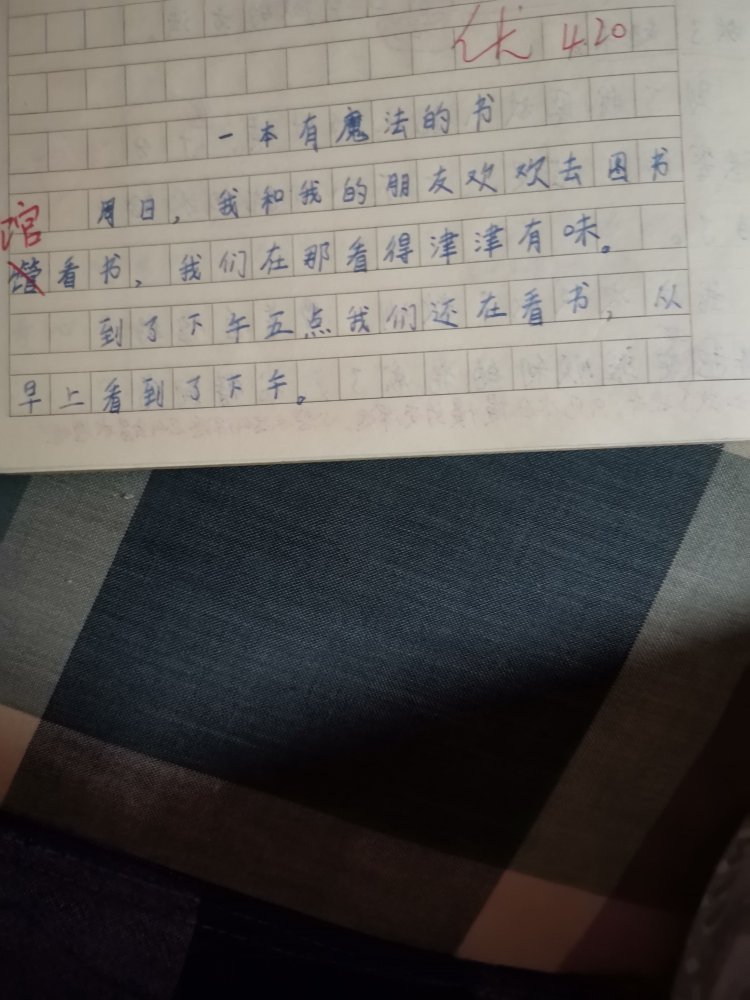 优 4.20
一本有魔法的书
周日，我和我的朋友欢欢去图书
馆
看书，我们在那看得津津有味。
到了下午五点我们还在看书，从
早上看到了下午。